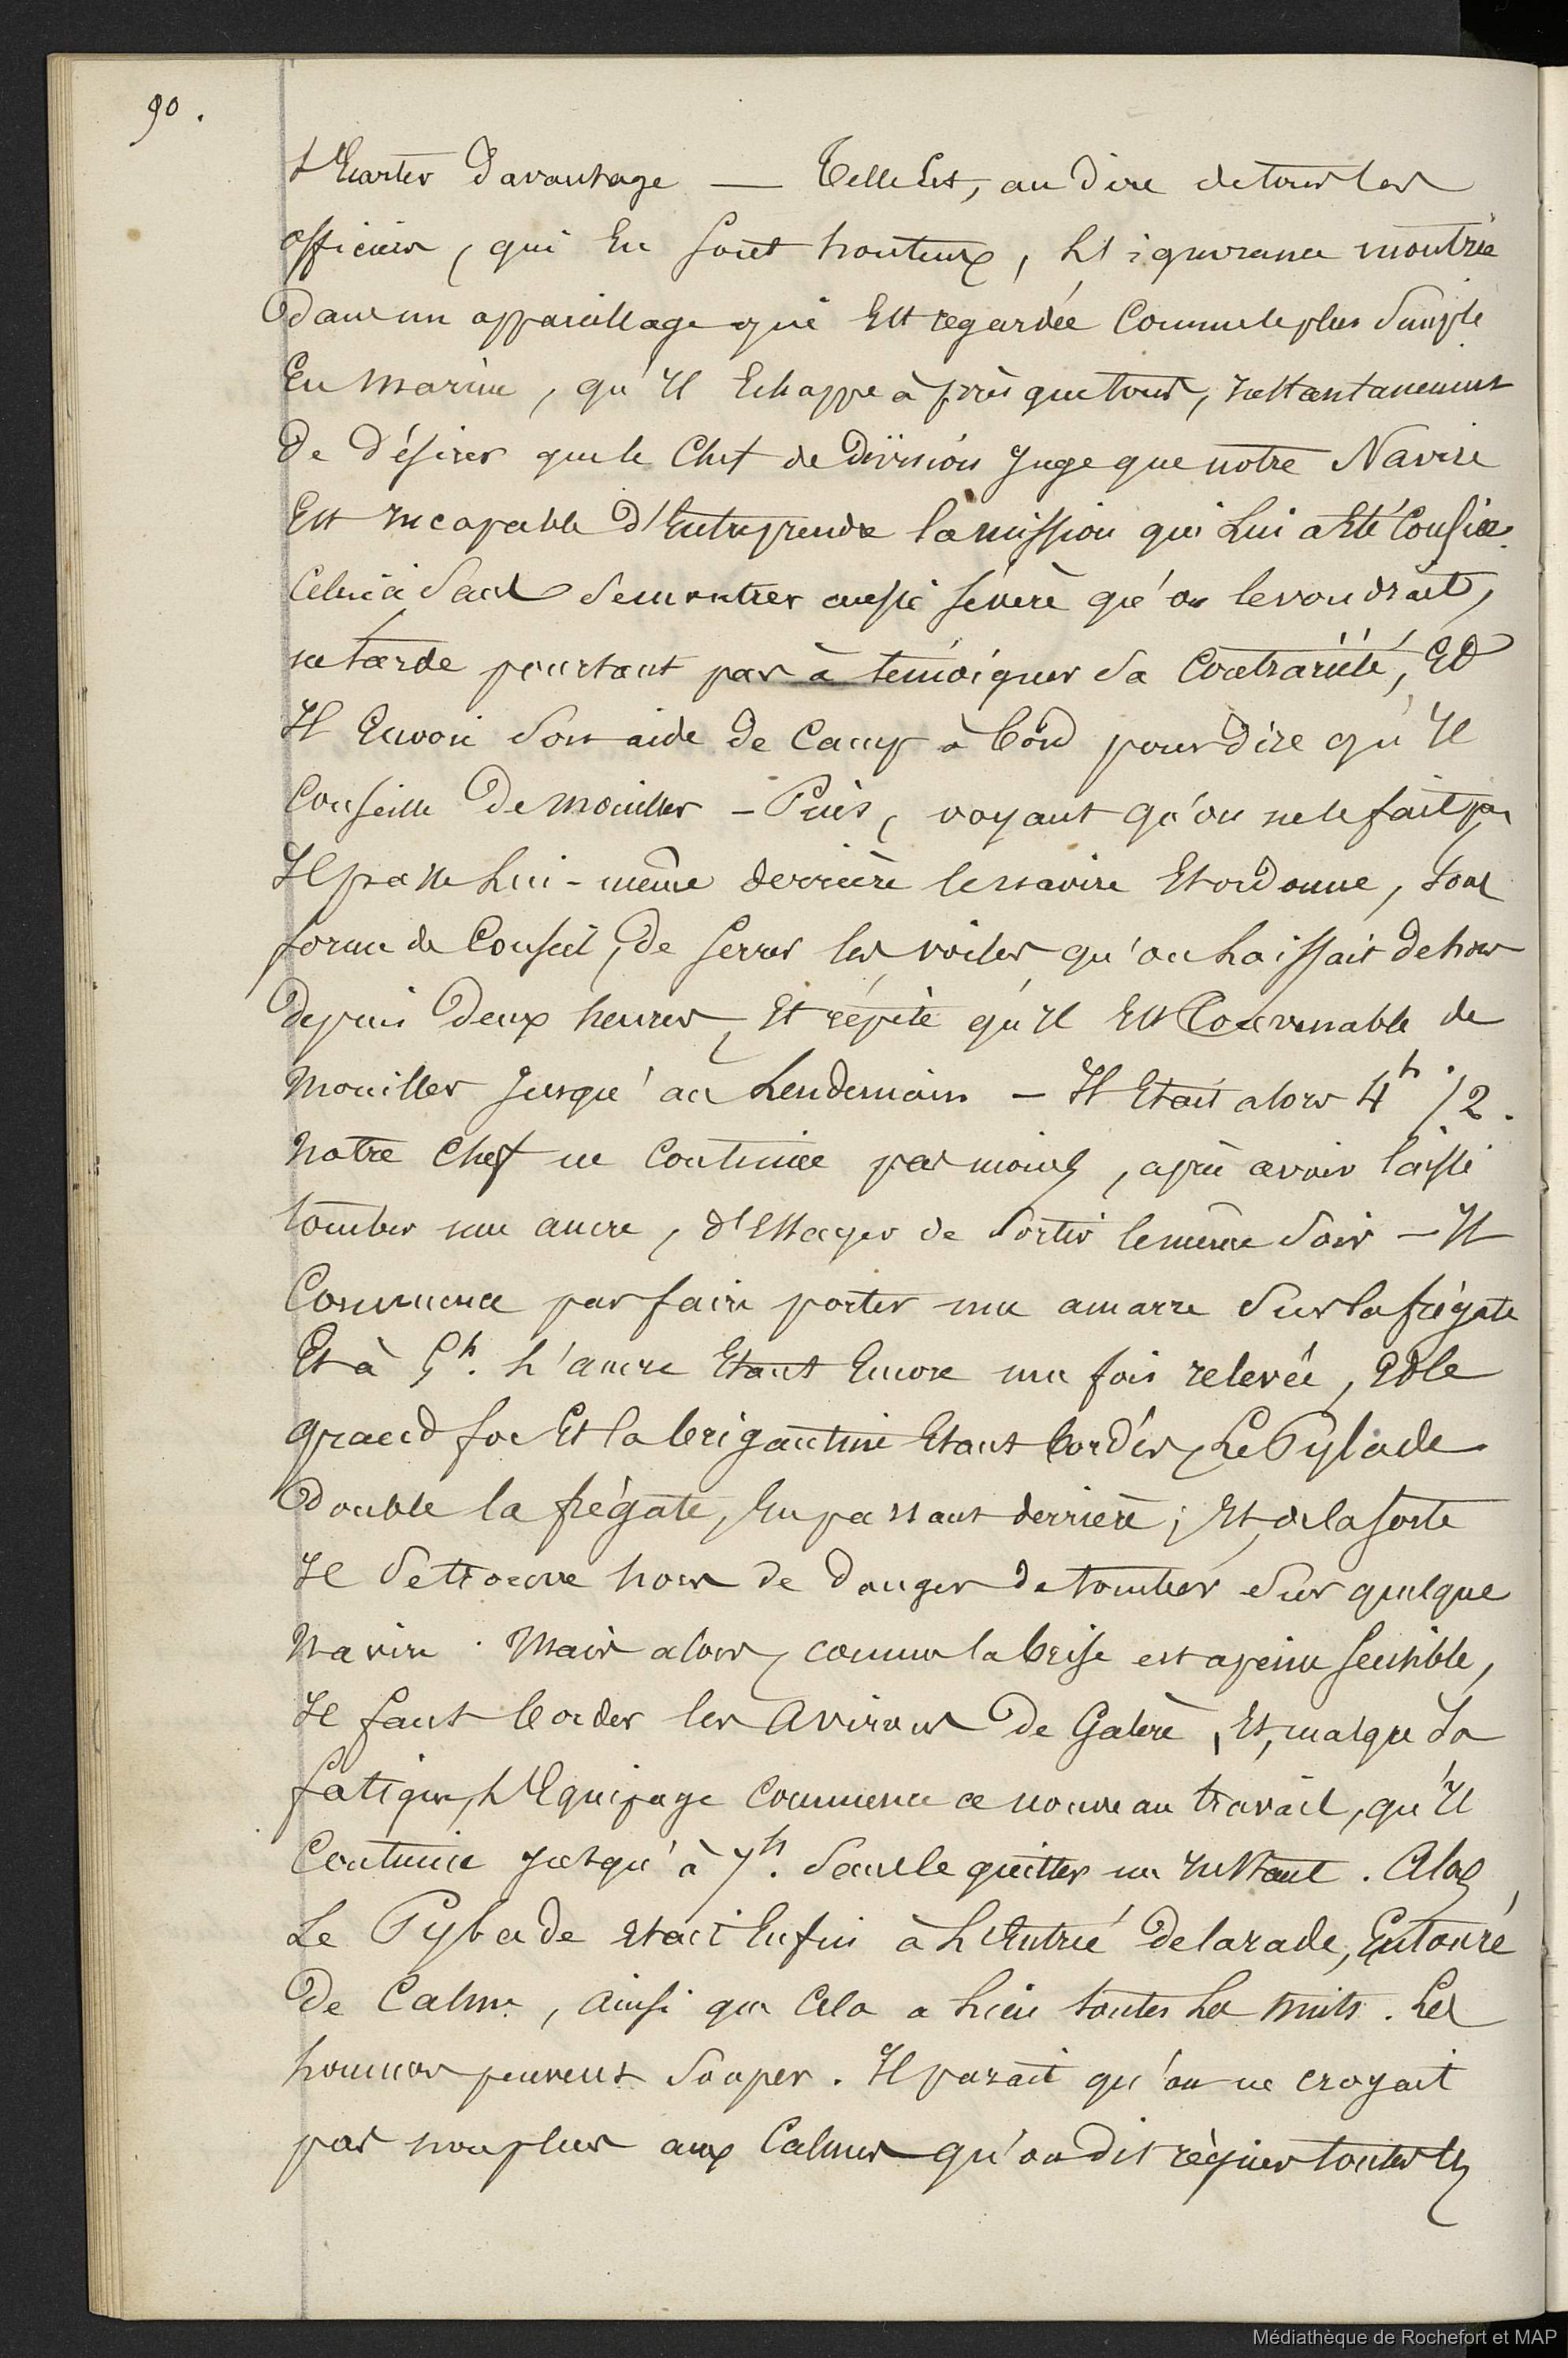 90.
s'Ecarter Davantage — Telle Est, au dire de tous les
officiers, qui En sont honteux, L'ignorance montrée
Dans un appareillage qui Est regardée Comme le plus Simple
En Marine, qu'Il Echappe à presque tous, Instantanement
De Désirer que le Chef de Division Juge que notre Navire
Est Incapable d'Entreprendre la mission qui Lui a Eté Confiée.
Celui-ci Sans Se montrer aussi sévère qu'on le voudrait,
ne tarde pourtant pas à témoigner Sa Contrariété, Et
Il Envoie Son aide de Camp à bord pour Dire qu'Il
Conseille De Mouiller – Puis, voyant qu'on ne le fait pas
Il passe Lui-même derrière le navire Et ordonne, Sous
forme de Conseil, De Serrer les voiles qu'on Laissait dehors
Depuis Deux heures, Et répète qu'Il Est Convenable de
Mouiller Jusqu'au Lendemain – Il Etait alors 4h 1/2.
Notre Chef ne Continue pas moins, après avoir laissé
tomber une ancre, d'Essayer de Sortir le même Soir – Il
Commence par faire porter une amarre Sur la frégate
Et à 5h. L'ancre Etant Encore une fois relevée, Et le
grand foc Et la brigantine Etant bordés, Le Pylade
Double la frégate, En passant derrière; Et de la sorte
Il Se trouve hors de Danger de tomber Sur quelque
Navire. Mais alors, comme la brise est à peine sensible,
Il faut border les Avirons De Galère, Et, malgré Sa
fatigue, L'Equipage Commence ce nouveau travail, qu'Il
Continue Jusqu'à 7h. Sans le quitter un Instant. Alors
Le Pylade Etait Enfin à L'Entrée De la rade, Entouré
De Calme, Ainsi que Cela a Lieu toutes Les nuits. Les
hommes peuvent Souper. Il parait qu'on ne croyait
pas non plus aux Calmes qu'on dit régner toutes les
Médiathèque de Rochefort et MAP